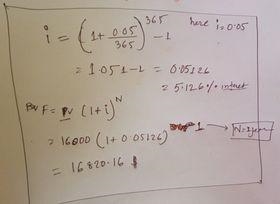 i = (1 + 0.05/365)^365 - 1 here i = 0.05
= 1.051 - 1 = 0.05126
= 5.126% interest
F = PV (1+i)^N
= 16000 (1 + 0.05126)^1 → N=1year
= 16820.16